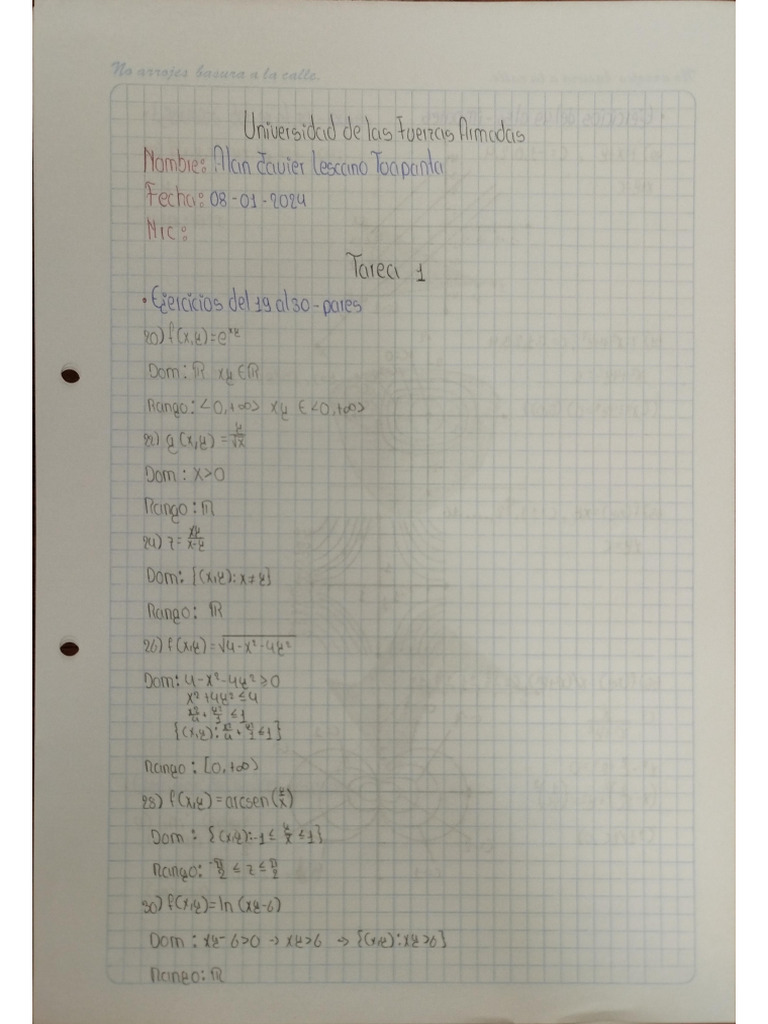 No arrojes basura a la calle.
Universidad de las Fuerzas Armadas
Nombre: Alan Javier Lescano Toapanta
Fecha: 08-01-2024
Nrc:
Tarea 1
• Ejercicios del 19 al 30-pares
20) f(x,y)=e^xy
Dom: ℝ xy ∈ ℝ
Rango: <0,+∞> xy ∈ <0,+∞>
22) g(x,y) = y/√x
Dom: x>0
Rango: ℝ
24) z = xy/x-y
Dom: {(x,y): x≠y}
Rango: ℝ
26) f(x,y) = √4-x²-4y²
Dom: 4-x²-4y² ≥ 0
x²+4y² ≤ 4
x²/4 + y²/1 ≤ 1
{(x,y): x²/4 + y²/1 ≤ 1}
Rango: [0,+∞)
28) f(x,y) = arcsen(y/x)
Dom: {(x,y): -1 ≤ y/x ≤ 1}
Rango: -π/2 ≤ z ≤ π/2
30) f(x,y) = ln (xy-6)
Dom: xy-6>0 → xy>6 → {(x,y): xy>6}
Rango: ℝ